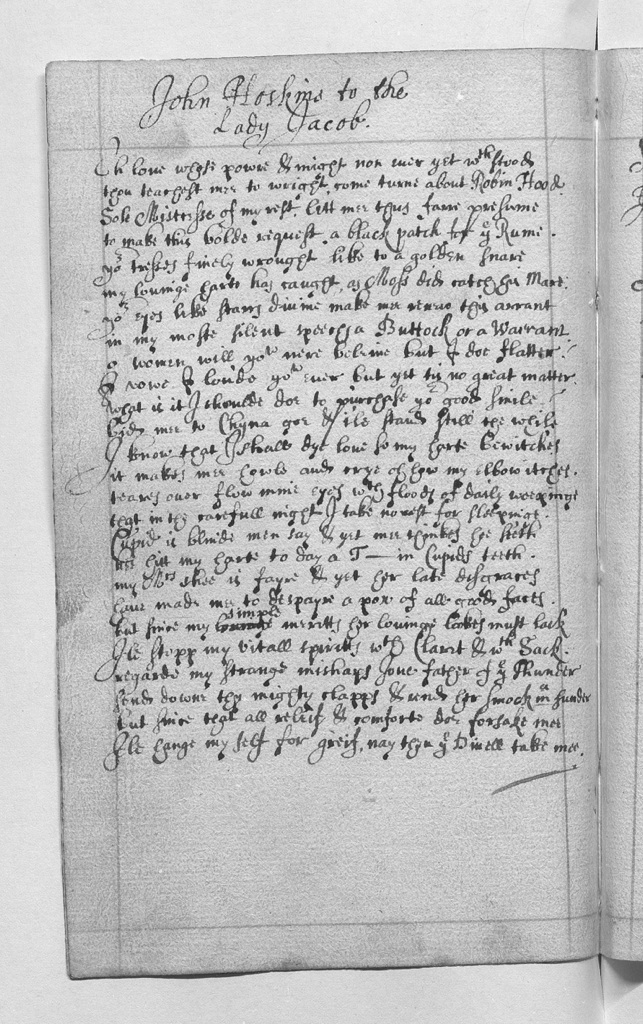 John Hoskins to the
Lady Jacob.
Oh love whose powre & might non ever yet wth stood
thou teachest mee to wright, come turne about Robin Hood.
Sole Mistresse of my rest, lett mee thus farre presume
to make this bolde request a black patch for ye Rume.
yor tresses finely wrought like to a golden snare
my lovinge harte has caught, as Moss did catch his Mare.
yor eyes like starrs divine make mee renew this arrant
in my moste silent speech a Buttock or a Warrant
o women will yow nere beleeve but I doe flatter.
I vowe I lovde yow ever but yet tis no great matter.
What is it I shoulde doe to purchase yor good smile
bidd mee to Chyna goe & ile stand still the while
I know that I shall dye love so my harte bewitches
it makes mee howle and crye oh how my elbow itches.
teares over flow mine eyes wth floods of daily weepinge
that in the carefull night I take no rest for sleepinge.
Cupid is blinde men say & yet mee thinkes hee seeth
hee hitt my harte to day a T— in Cupids teeth.
my Mrs shee is fayre & yet her late disgraces
have made mee to despayre a pox of all good faces.
but since my simple merritts her lovinge lookes must lack
Ile stopp my vitall spiritts wth Claret & wth Sack.
regarde my strange mishapps Jove father of ye thunder
send downe thy mighty clapps & rend her smock in sunder
but since that all releif & comforte doe forsake mee
Ile hange my self for greif, nay then ye Divell take mee.